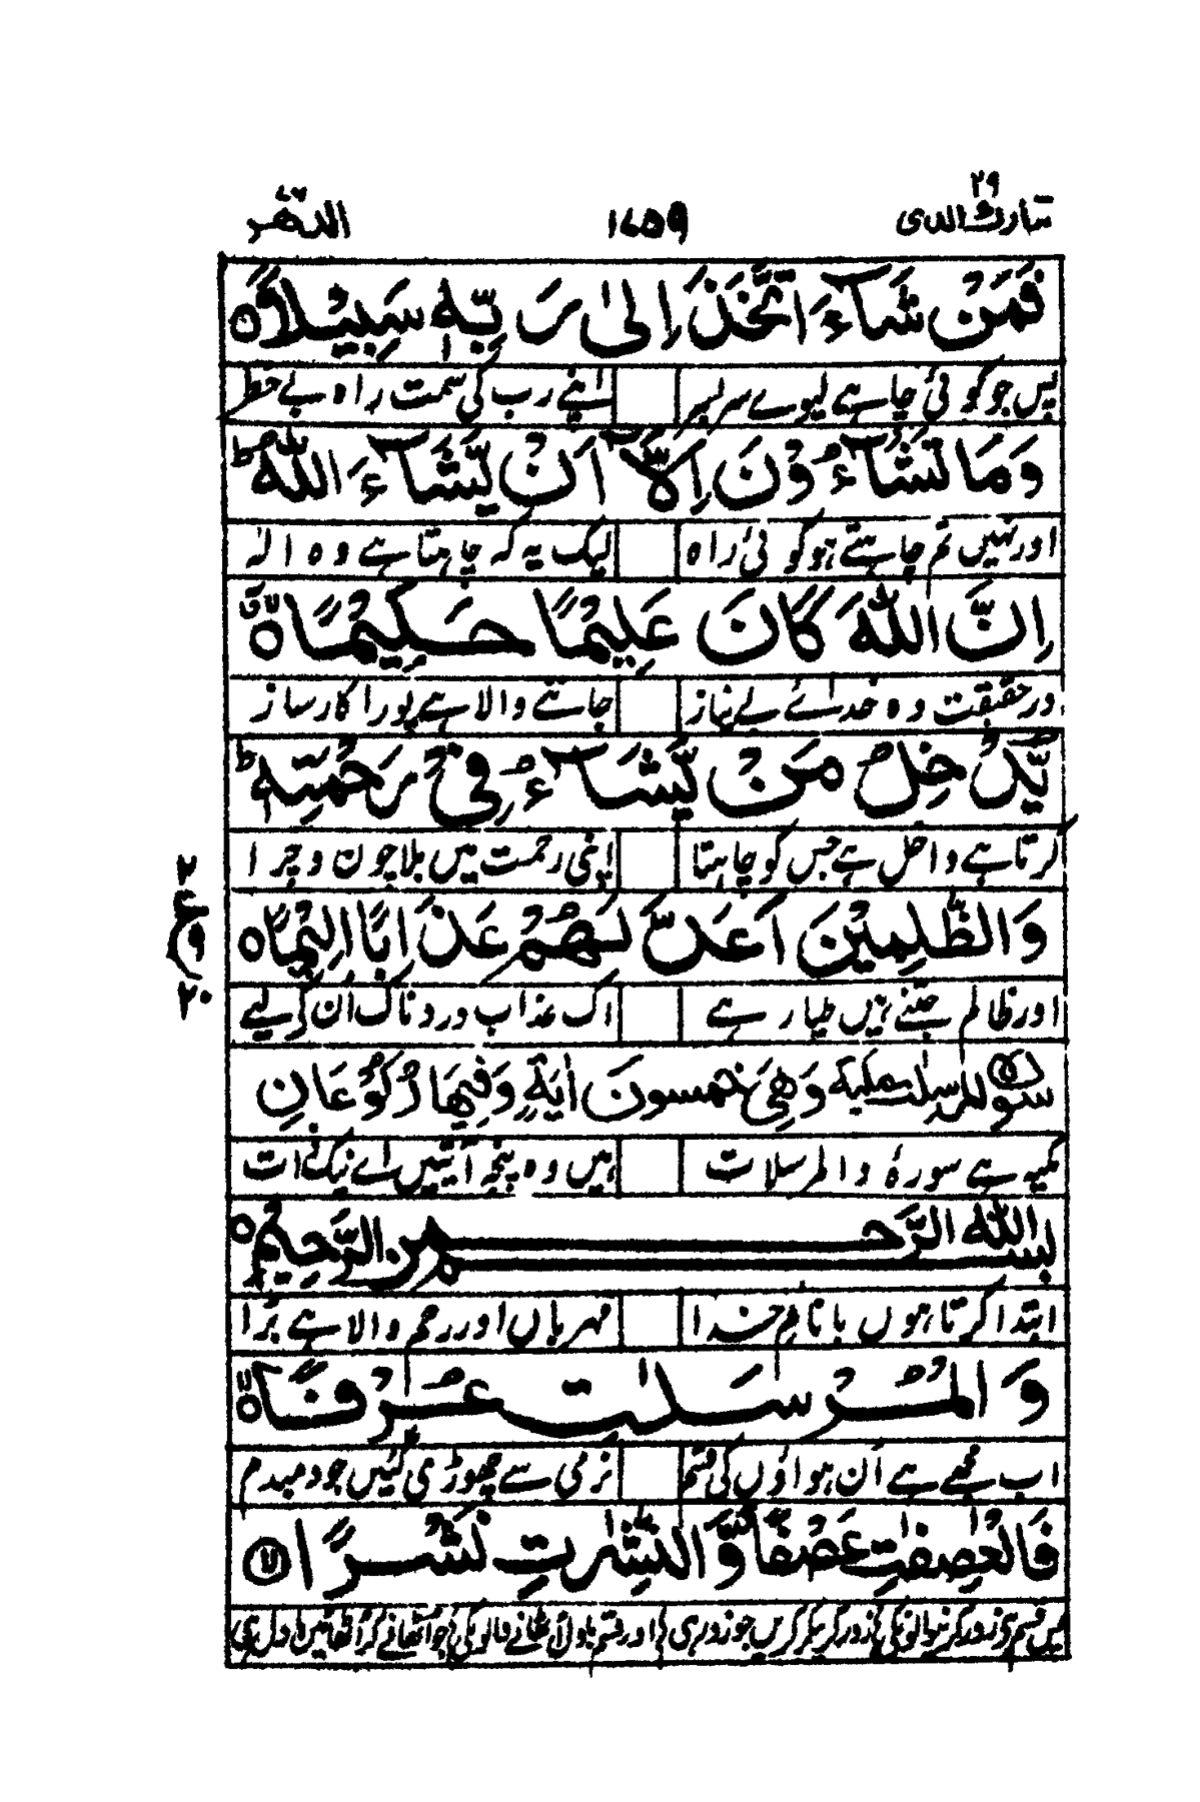 ۲۹
تبارك الذی ۱۴۵۹ الدهر ۷۶
فَمَنْ شَآءَ اتَّخَذَ اِلٰی رَبِّهٖ سَبِیْلًا ۝
پس جو کوئی چاہے لیوے سر بسر اپنے رب کی سمت راہ بے خطر
وَمَا تَشَآءُوْنَ اِلَّاۤ اَنْ یَّشَآءَ اللّٰهُ ؕ
اور نہیں تم چاہتے ہو کوئی راہ لیک یہ کہ چاہتا ہے وہ الٰہ
اِنَّ اللّٰهَ كَانَ عَلِیْمًا حَكِیْمًا ۝
در حقیقت وہ خدائے بے نیاز جاننے والا ہے پورا کارساز
یُّدْخِلُ مَنْ یَّشَآءُ فِیْ رَحْمَتِهٖ ؕ
کرتا ہے داخل ہے جس کو چاہتا اپنی رحمت میں بلا چون و چرا
وَالظّٰلِمِیْنَ اَعَدَّ لَهُمْ عَذَابًا اَلِیْمًا ۝
اور ظالم جتنے ہیں طیار ہے اک عذاب دردناک اُن کے لیے
۲
ع
۹
۲۰
سورة المرسلت مكية وَهِیَ خمسونَ اٰیَةً وَفِیهَا رُكُوْعَانِ
مکیہ ہے سورہٴ والمرسلات ہیں وہ پنجہ آیتیں اے نیک ذات
بِسْمِ اللّٰهِ الرَّحْمٰنِ الرَّحِیْمِ ۝
ابتدا کرتا ہوں با نام خدا مہرباں اور رحم والا ہے بڑا
وَالْمُرْسَلٰتِ عُرْفًا ۝
اب مجھے ہے اُن ہواؤں کی قسم نرمی سے چھوڑی گئیں جو دمبدم
فَالْعٰصِفٰتِ عَصْفًا وَّالنّٰشِرٰتِ نَشْرًا ۝